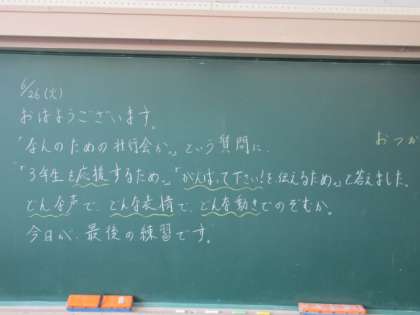 6/26(火)
おはようございます。
「なんのための壮行会か。」という質問に、
「3年生を応援するため。」「がんばって下さい!を伝えるため。」と答えました。
どんな声で、どんな表情で、どんな動きでのぞむか。
今日が、最後の練習です。
おつか